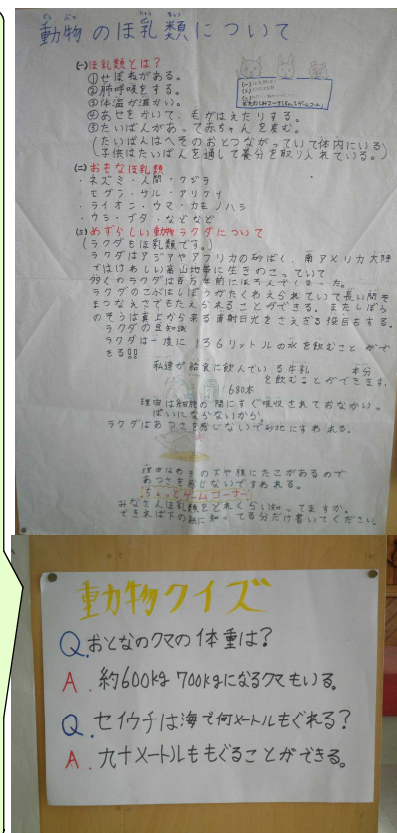 どう ぶつ にゅう るい
動物のほ乳類について
(一)ほ乳類とは?
①せぼねがある。
②肺呼吸をする。
③体温が温かい。
④あせをかいて、毛がはえたりする。
⑤たいばんがあって赤ちゃんを産む。
(たいばんはへそのおとつながっていて体内にいる
子供はたいばんを通して養分を取り入れている。)
(二)おもなほ乳類
・ネズミ・人間・クジラ
・モグラ・サル・アリクイ
・ライオン・ウマ・カモノハシ
・ウシ・ブタ・などなど
(三)めずらしい動物ラクダについて
(ラクダもほ乳類です。)
ラクダはアジアやアフリカの砂ばく、南アメリカ大陸
ではけわしい高山地帯に生きのこっていて
多くのラクダは百万年前にほろんでしまった。
ラクダのこぶはしぼうがたくわえられていて長い間を
まつなえさでもたえられることができる。またしぼう
のそうは真上から来る直射日光をさえぎる役目もする。
ラクダの豆知識
ラクダは一度に136リットルの水を飲むことがで
きる!!
私達が給食に飲んでいる牛乳 本分
を飲むことができます。
680本
理由は細胞の間にすぐ吸収されておなかいっ
ぱいにならないから。
ラクダはあつさを感じないで砂地にすわれる。
理由はむねの下や腹にたこがあるので
あつさを感じないですわれる。
ちょっとゲームコーナー
みなさんほ乳類をどれくらい知ってますか。
できれば下の紙に知ってる分だけ書いてください。
動物クイズ
Q.おとなのクマの体重は?
A.約600kg 700kgになるクマもいる。
Q.セイウチは海で何メートルもぐれる?
A.九十メートルももぐることができる。